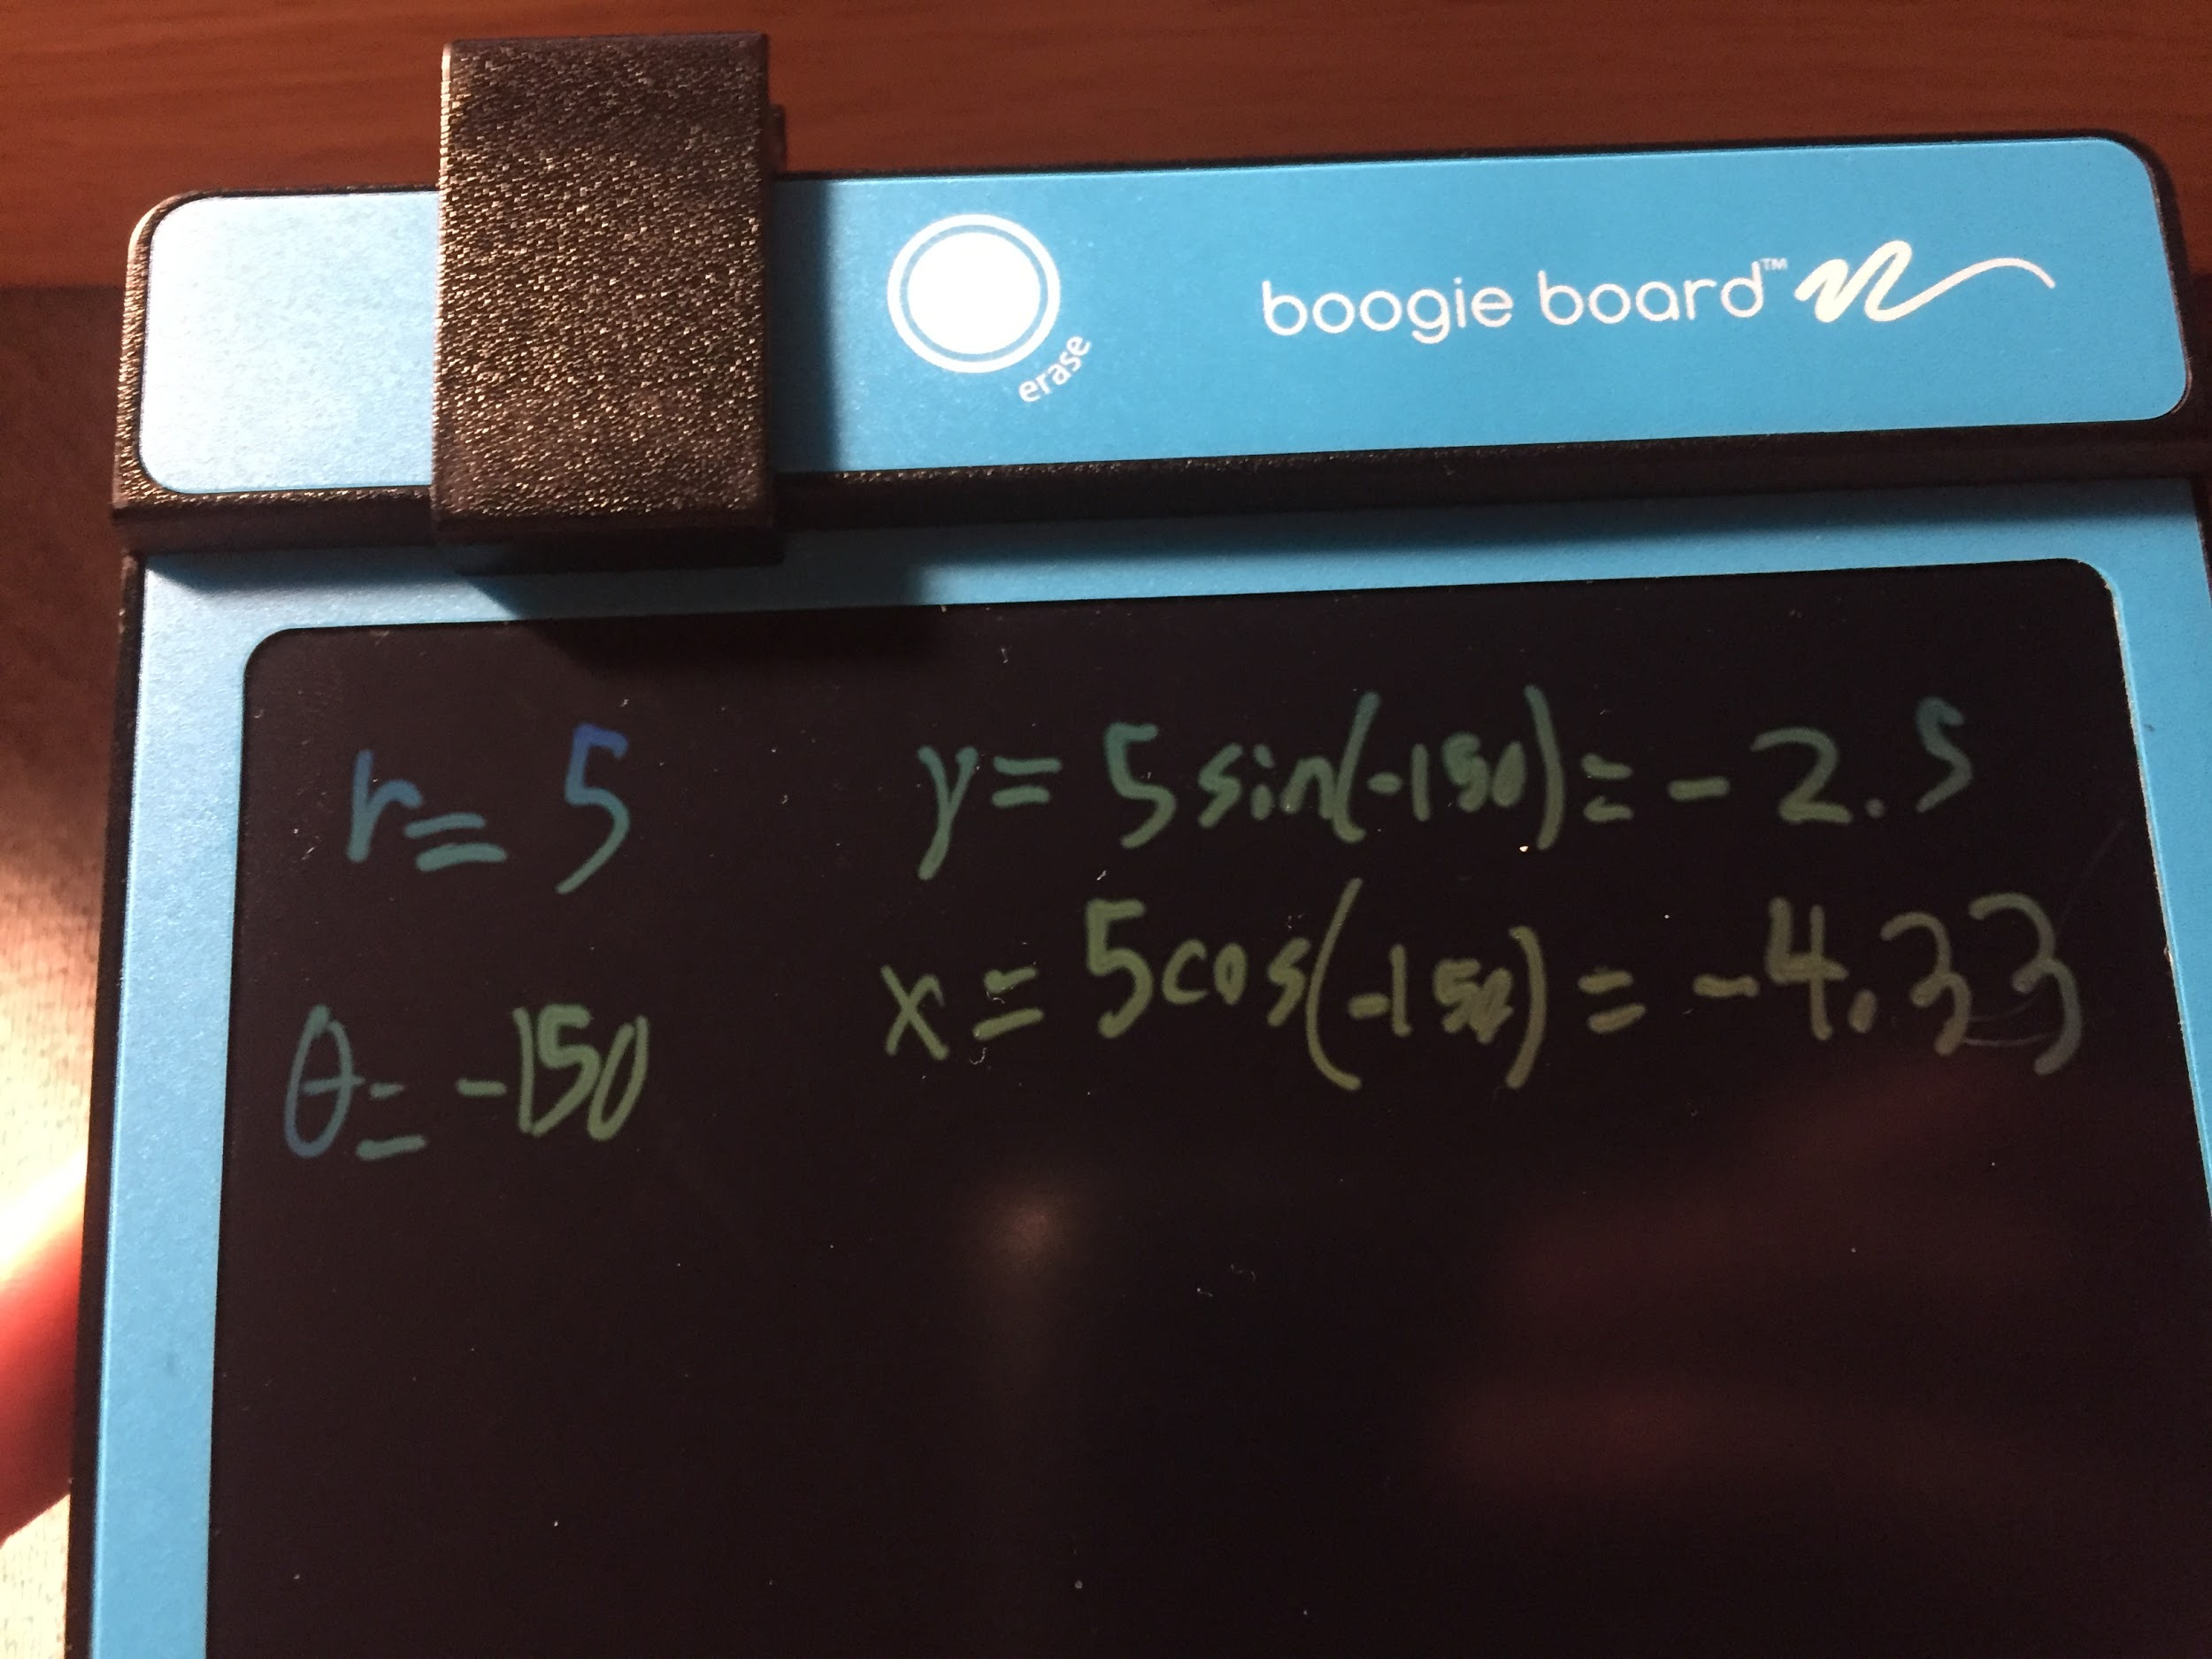 erase
boogie board™
r= 5
y= 5 sin(-150)= -2.5
θ= -150
x= 5cos(-150)= -4.33